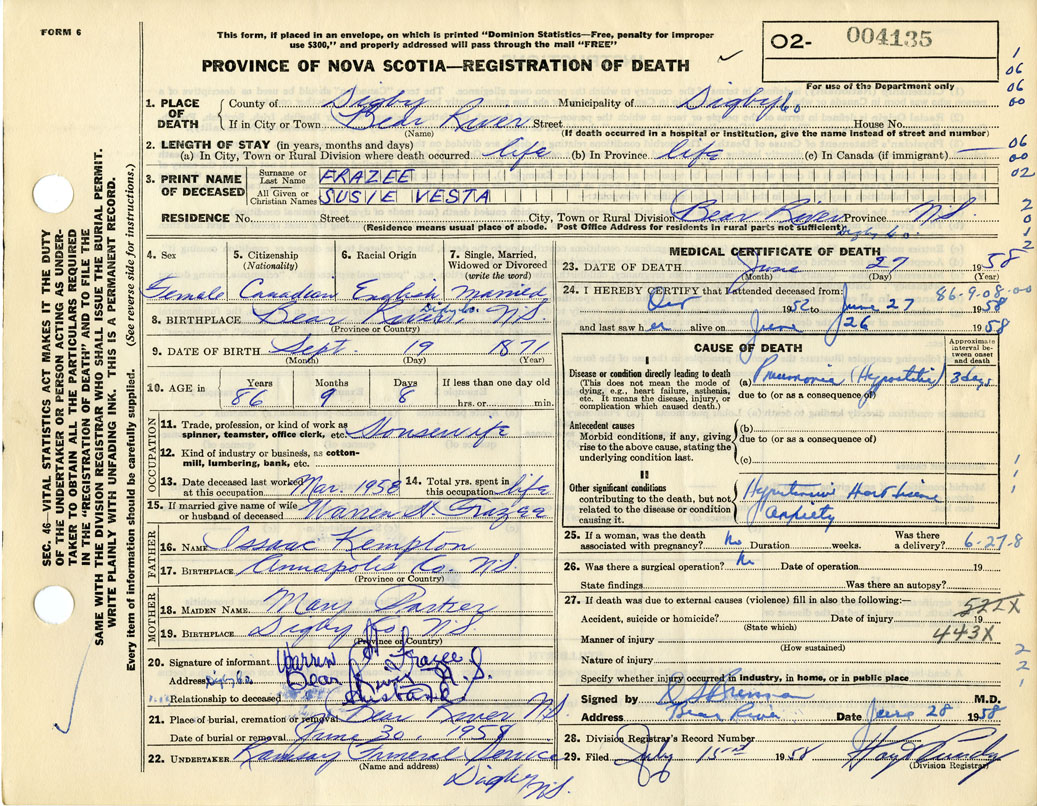 FORM 6
This form, if placed in an envelope, on which is printed "Dominion Statistics—Free, penalty for improper
use $300," and properly addressed will pass through the mail "FREE"
PROVINCE OF NOVA SCOTIA—REGISTRATION OF DEATH
O2- 004135
For use of the Department only
1
06
06
00
06
00
02
2
0
1
2
SEC. 46—VITAL STATISTICS ACT MAKES IT THE DUTY
OF THE UNDERTAKER OR PERSON ACTING AS UNDER-
TAKER TO OBTAIN ALL THE PARTICULARS REQUIRED
IN THE "REGISTRATION OF DEATH" AND TO FILE THE
SAME WITH THE DIVISION REGISTRAR WHO SHALL ISSUE THE BURIAL PERMIT.
WRITE PLAINLY WITH UNFADING INK. THIS IS A PERMANENT RECORD.
Every item of information should be carefully supplied. (See reverse side for instructions.)
1. PLACE OF DEATH
County of Digby Municipality of Digby Co
If in City or Town Bear River Street House No.
(Name) (If death occurred in a hospital or institution, give the name instead of street and number)
2. LENGTH OF STAY (in years, months and days)
(a) In City, Town or Rural Division where death occurred life (b) In Province life (c) In Canada (if immigrant) —
3. PRINT NAME OF DECEASED
Surname or Last Name FRAZEE
All Given or Christian Names SUSIE VESTA
RESIDENCE No. Street City, Town or Rural Division Bear River Province N.S.
(Residence means usual place of abode. Post Office Address for residents in rural parts not sufficient) Digby Co.
4. Sex
Female
5. Citizenship (Nationality)
Canadian
6. Racial Origin
English
7. Single, Married, Widowed or Divorced (write the word)
Married
8. BIRTHPLACE Bear River, Digby Co. N.S.
(Province or Country)
9. DATE OF BIRTH Sept. 19 1871
(Month) (Day) (Year)
10. AGE in Years Months Days If less than one day old
86 9 8 hrs. or min.
OCCUPATION
11. Trade, profession, or kind of work as spinner, teamster, office clerk, etc. Housewife
12. Kind of industry or business, as cotton-mill, lumbering, bank, etc.
13. Date deceased last worked at this occupation Mar. 1958 14. Total yrs. spent in this occupation life
15. If married give name of wife or husband of deceased Warren H. Frazee
FATHER
16. NAME Issac Kempton
17. BIRTHPLACE Annapolis Co. N.S.
(Province or Country)
MOTHER
18. MAIDEN NAME. Mary Parker
19. BIRTHPLACE. Digby Co N.S
(Province or Country)
20. Signature of informant Warren H Frazee
Address Digby Co Bear River N.S.
Relationship to deceased Husband
21. Place of burial, cremation or removal Bear River N.S.
Date of burial or removal June 30, 1958
22. UNDERTAKER Ramsay Funeral Service
(Name and address)
Digby N.S.
MEDICAL CERTIFICATE OF DEATH
23. DATE OF DEATH June 27 1958
(Month) (Day) (Year)
24. I HEREBY CERTIFY that I attended deceased from: 86-9-08-00
Oct 1952 to June 27 1958
and last saw her alive on June 26 1958
CAUSE OF DEATH
Approximate interval between onset and death
I
Disease or condition directly leading to death
(This does not mean the mode of dying, e.g., heart failure, asthenia, etc. It means the disease, injury, or complication which caused death.)
(a) Pneumonia (Hypostatic) 3 days
due to (or as a consequence of)
Antecedent causes
Morbid conditions, if any, giving rise to the above cause, stating the underlying condition last.
(b)
due to (or as a consequence of)
(c)
II
Other significant conditions
contributing to the death, but not related to the disease or condition causing it.
Hypertensive Heart Disease
Anxiety
1
1
1
25. If a woman, was the death associated with pregnancy? No Duration weeks. Was there a delivery? 6-27-8
26. Was there a surgical operation? No Date of operation 19
State findings Was there an autopsy?
27. If death was due to external causes (violence) fill in also the following:—
Accident, suicide or homicide? Date of injury 19
(State which)
443X
Manner of injury
(How sustained)
Nature of injury
Specify whether injury occurred in industry, in home, or in public place
2
2
1
Signed by Brennan M.D.
Address Bear River Date June 28 1958
28. Division Registrar's Record Number
29. Filed July 15th 1958
(Division Registrar)